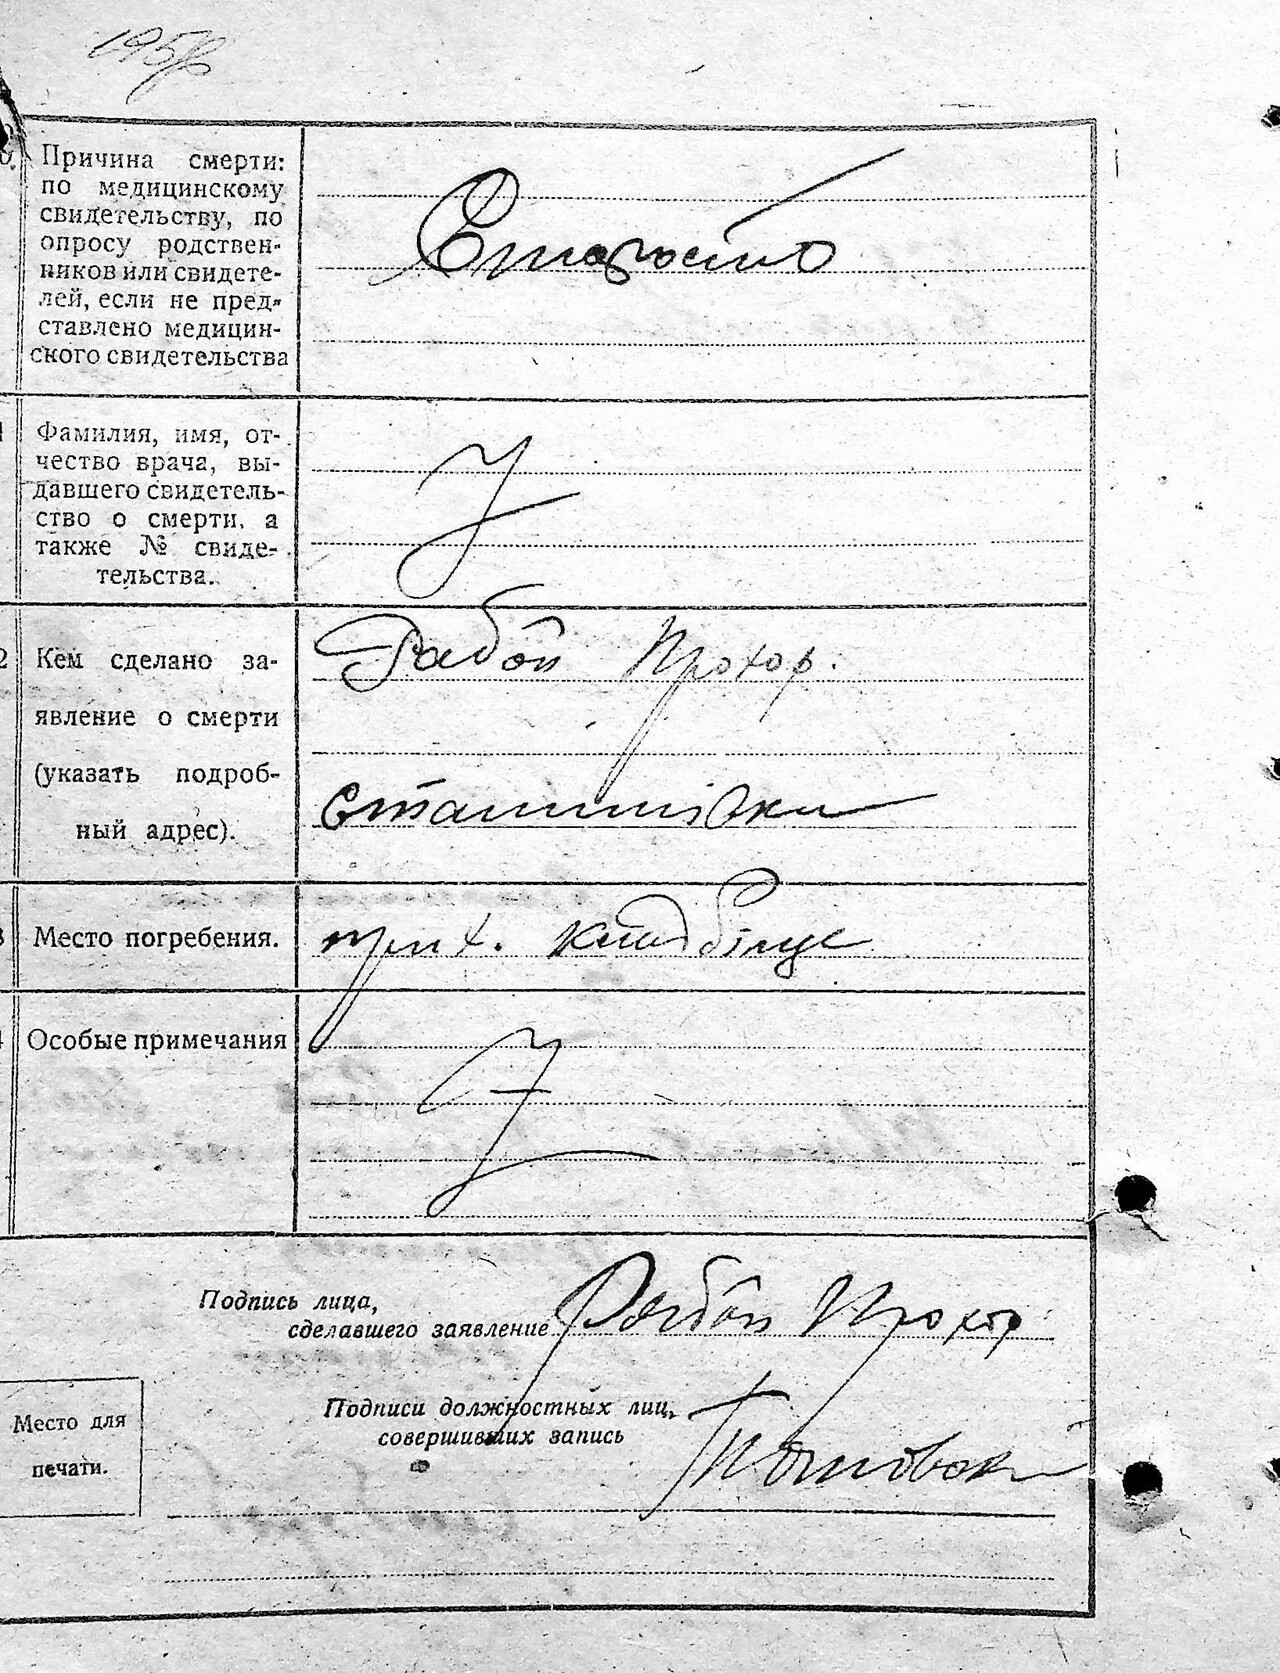 Причина смерти:
по медицинскому
свидетельству, по
опросу родствен-
ников или свидете-
лей, если не пред-
ставлено медицин-
ского свидетельства
Старость
Фамилия, имя, от-
чество врача, вы-
давшего свидетель-
ство о смерти, а
также № свиде-
тельства.
Кем сделано за-
явление о смерти
(указать подроб-
ный адрес).
Рабой Прохор.
Место погребения.
прих. кладбище
Особые примечания
Подпись лица,
сделавшего заявление Рабой Прохор
Подписи должностных лиц,
совершивших запись
Место для
печати.